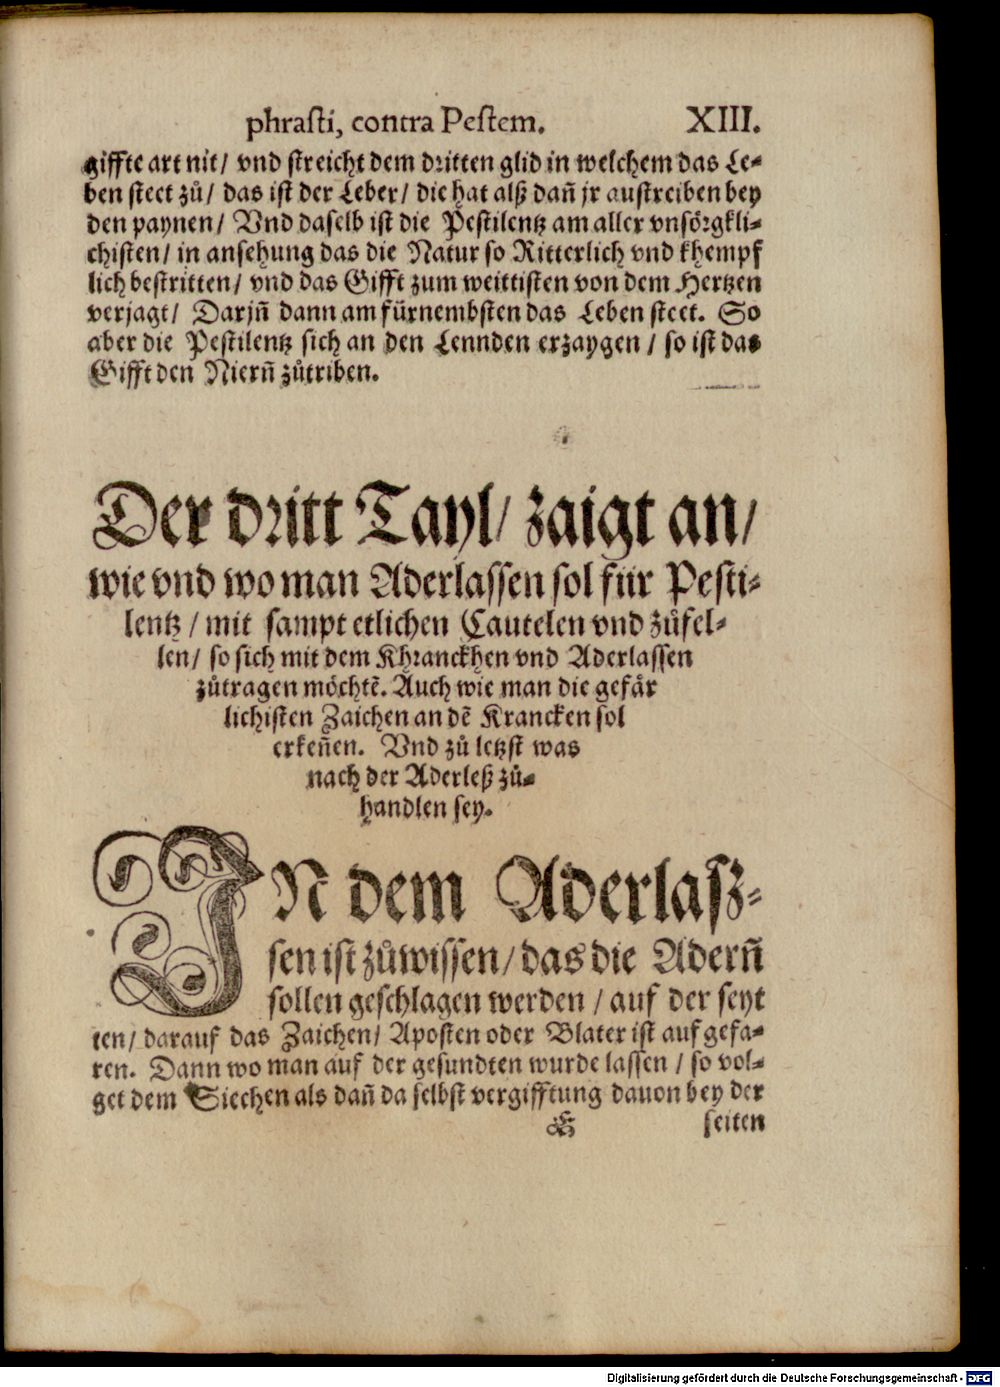 phraſti, contra Peſtem. XIII.
giffte art nit/ vnd ſtreicht dem dritten glid in welchem das Le⸗
ben ſteet zů/ das iſt der Leber/ die hat alß dañ jr auſtreiben bey
den paynen/ Vnd daſelb iſt die Peſtilentz am aller vnſörgkli⸗
chiſten/ in anſehung das die Natur ſo Ritterlich vnd khempf
lich beſtritten/ vnd das Gifft zum weittiſten von dem Hertzen
verjagt/ Darjñ dann am fürnembſten das Leben ſteet. So
aber die Peſtilentz ſich an den Lennden erzaygen / ſo iſt das
Gifft den Nierñ zůtriben.
Der dritt Tayl/ zaigt an/
wie vnd wo man Aderlaſſen ſol für Peſti⸗
lentz / mit ſampt etlichen Cautelen vnd zůfel⸗
len/ ſo ſich mit dem Khranckhen vnd Aderlaſſen
zůtragen möchtē. Auch wie man die gefär
lichiſten Zaichen an dē Krancken ſol
erkeñen. Vnd zů letzſt was
nach der Aderleß zů⸗
handlen ſey.
IN dem Aderlaſz⸗
ſen iſt zůwiſſen/ das die Aderñ
ſollen geſchlagen werden / auf der ſeyt
ten/ darauf das Zaichen/ Apoſten oder Blater iſt auf gefa⸗
ren. Dann wo man auf der geſundten wurde laſſen / ſo vol⸗
get dem Siechen als dañ da ſelbſt vergifftung dauon bey der
ſeiten
Digitalisierung gefördert durch die Deutsche Forschungsgemeinschaft - DFG